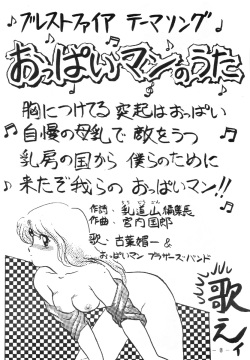 ♪ブレストファイア テーマソング♪
おっぱいマンのうた
胸につけてる 突起はおっぱい
自慢の母乳で 敵をうつ
乳房の国から 僕らのために
来たぞ我らの おっぱいマン!!
作詩:乳道山編集長
作曲:宮内国郎
歌:古葉帽一&
おっぱいマン ブラザーズ・バンド
歌えィ